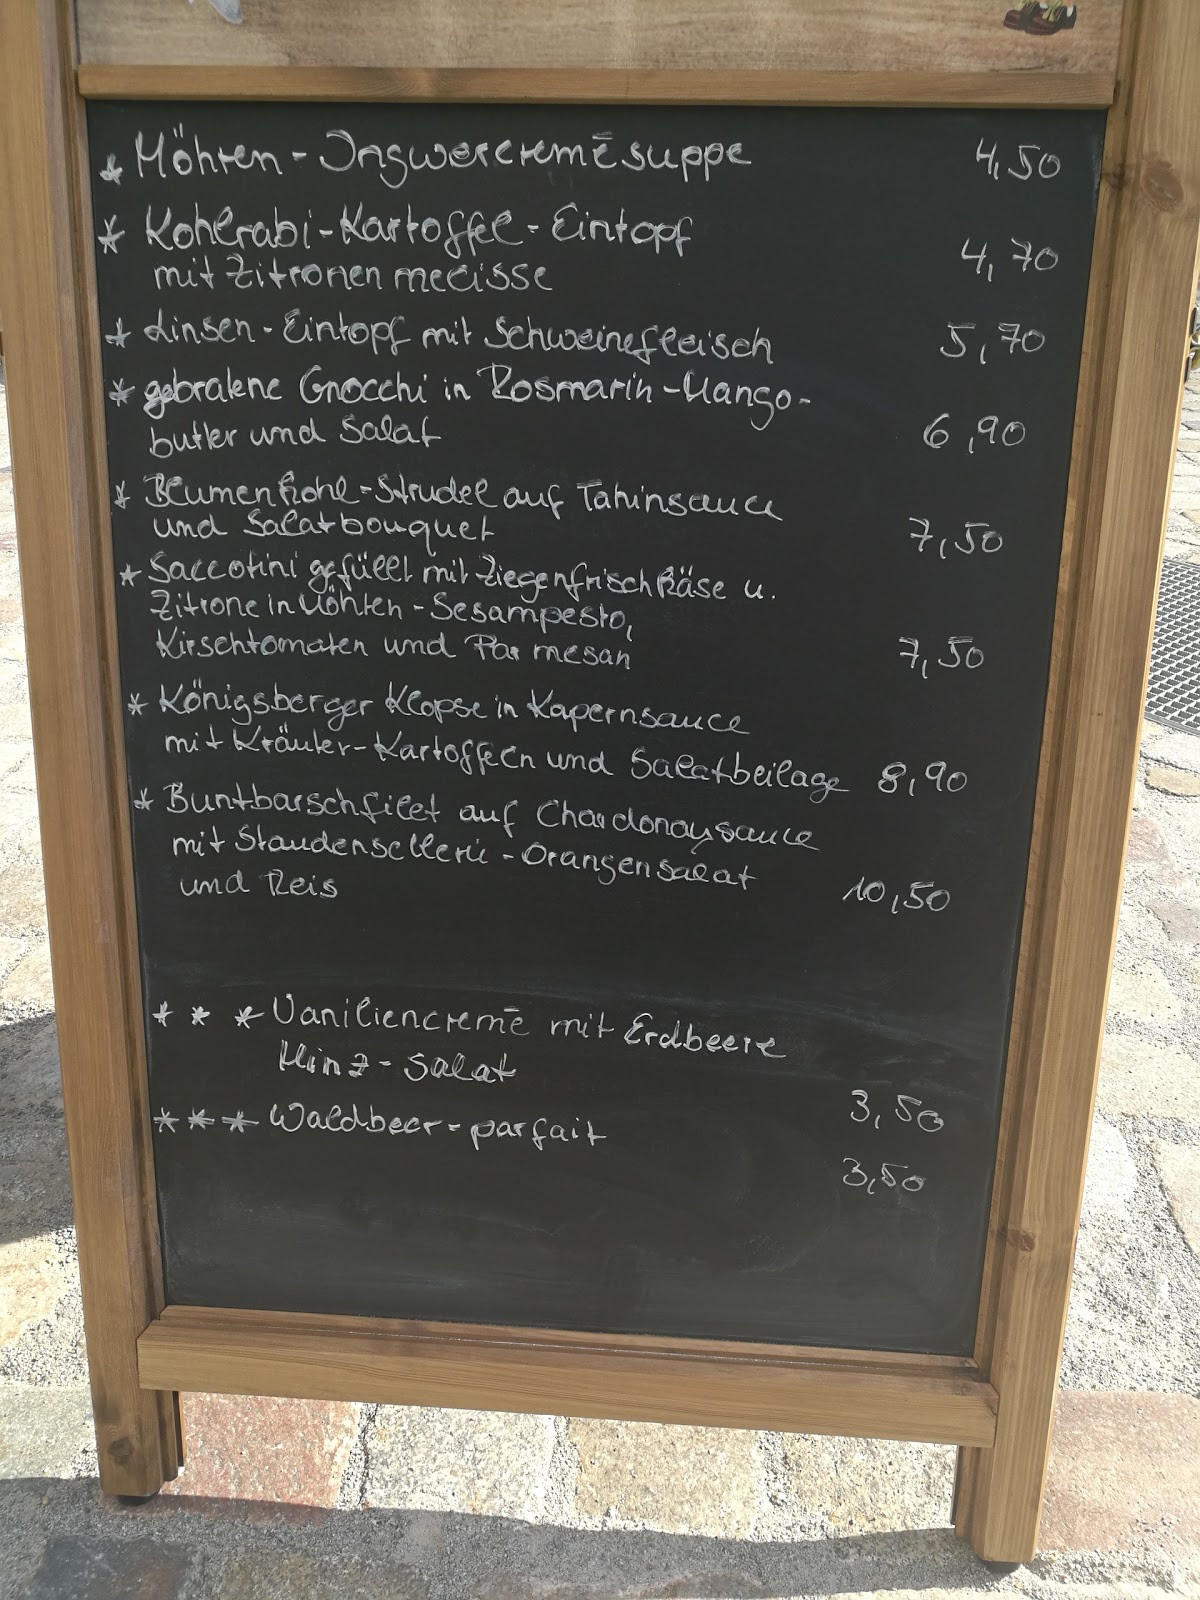 * Möhren-Ingwercremēsuppe 4,50
* Kohlrabi-Kartoffel-Eintopf
mit Zitronenmelisse 4,70
* Linsen-Eintopf mit Schweinefleisch 5,70
* gebratene Gnocchi in Rosmarin-Mango-
butter und Salat 6,90
* Blumenkohl-Strudel auf Tahinsauce
und Salatbouquet 7,50
* Saccotini gefüllt mit Ziegenfrischkäse u.
Zitrone in Möhren-Sesampesto,
Kirschtomaten und Parmesan 7,50
* Königsberger Klopse in Kapernsauce
mit Kräuter-Kartoffeln und Salatbeilage 8,90
* Buntbarschfilet auf Chardonaysauce
mit Staudensellerie-Orangensalat
und Reis 10,50
* * * Vaniliencremē mit Erdbeere
Minz-Salat 3,50
* * * Waldbeer-parfait
3,50